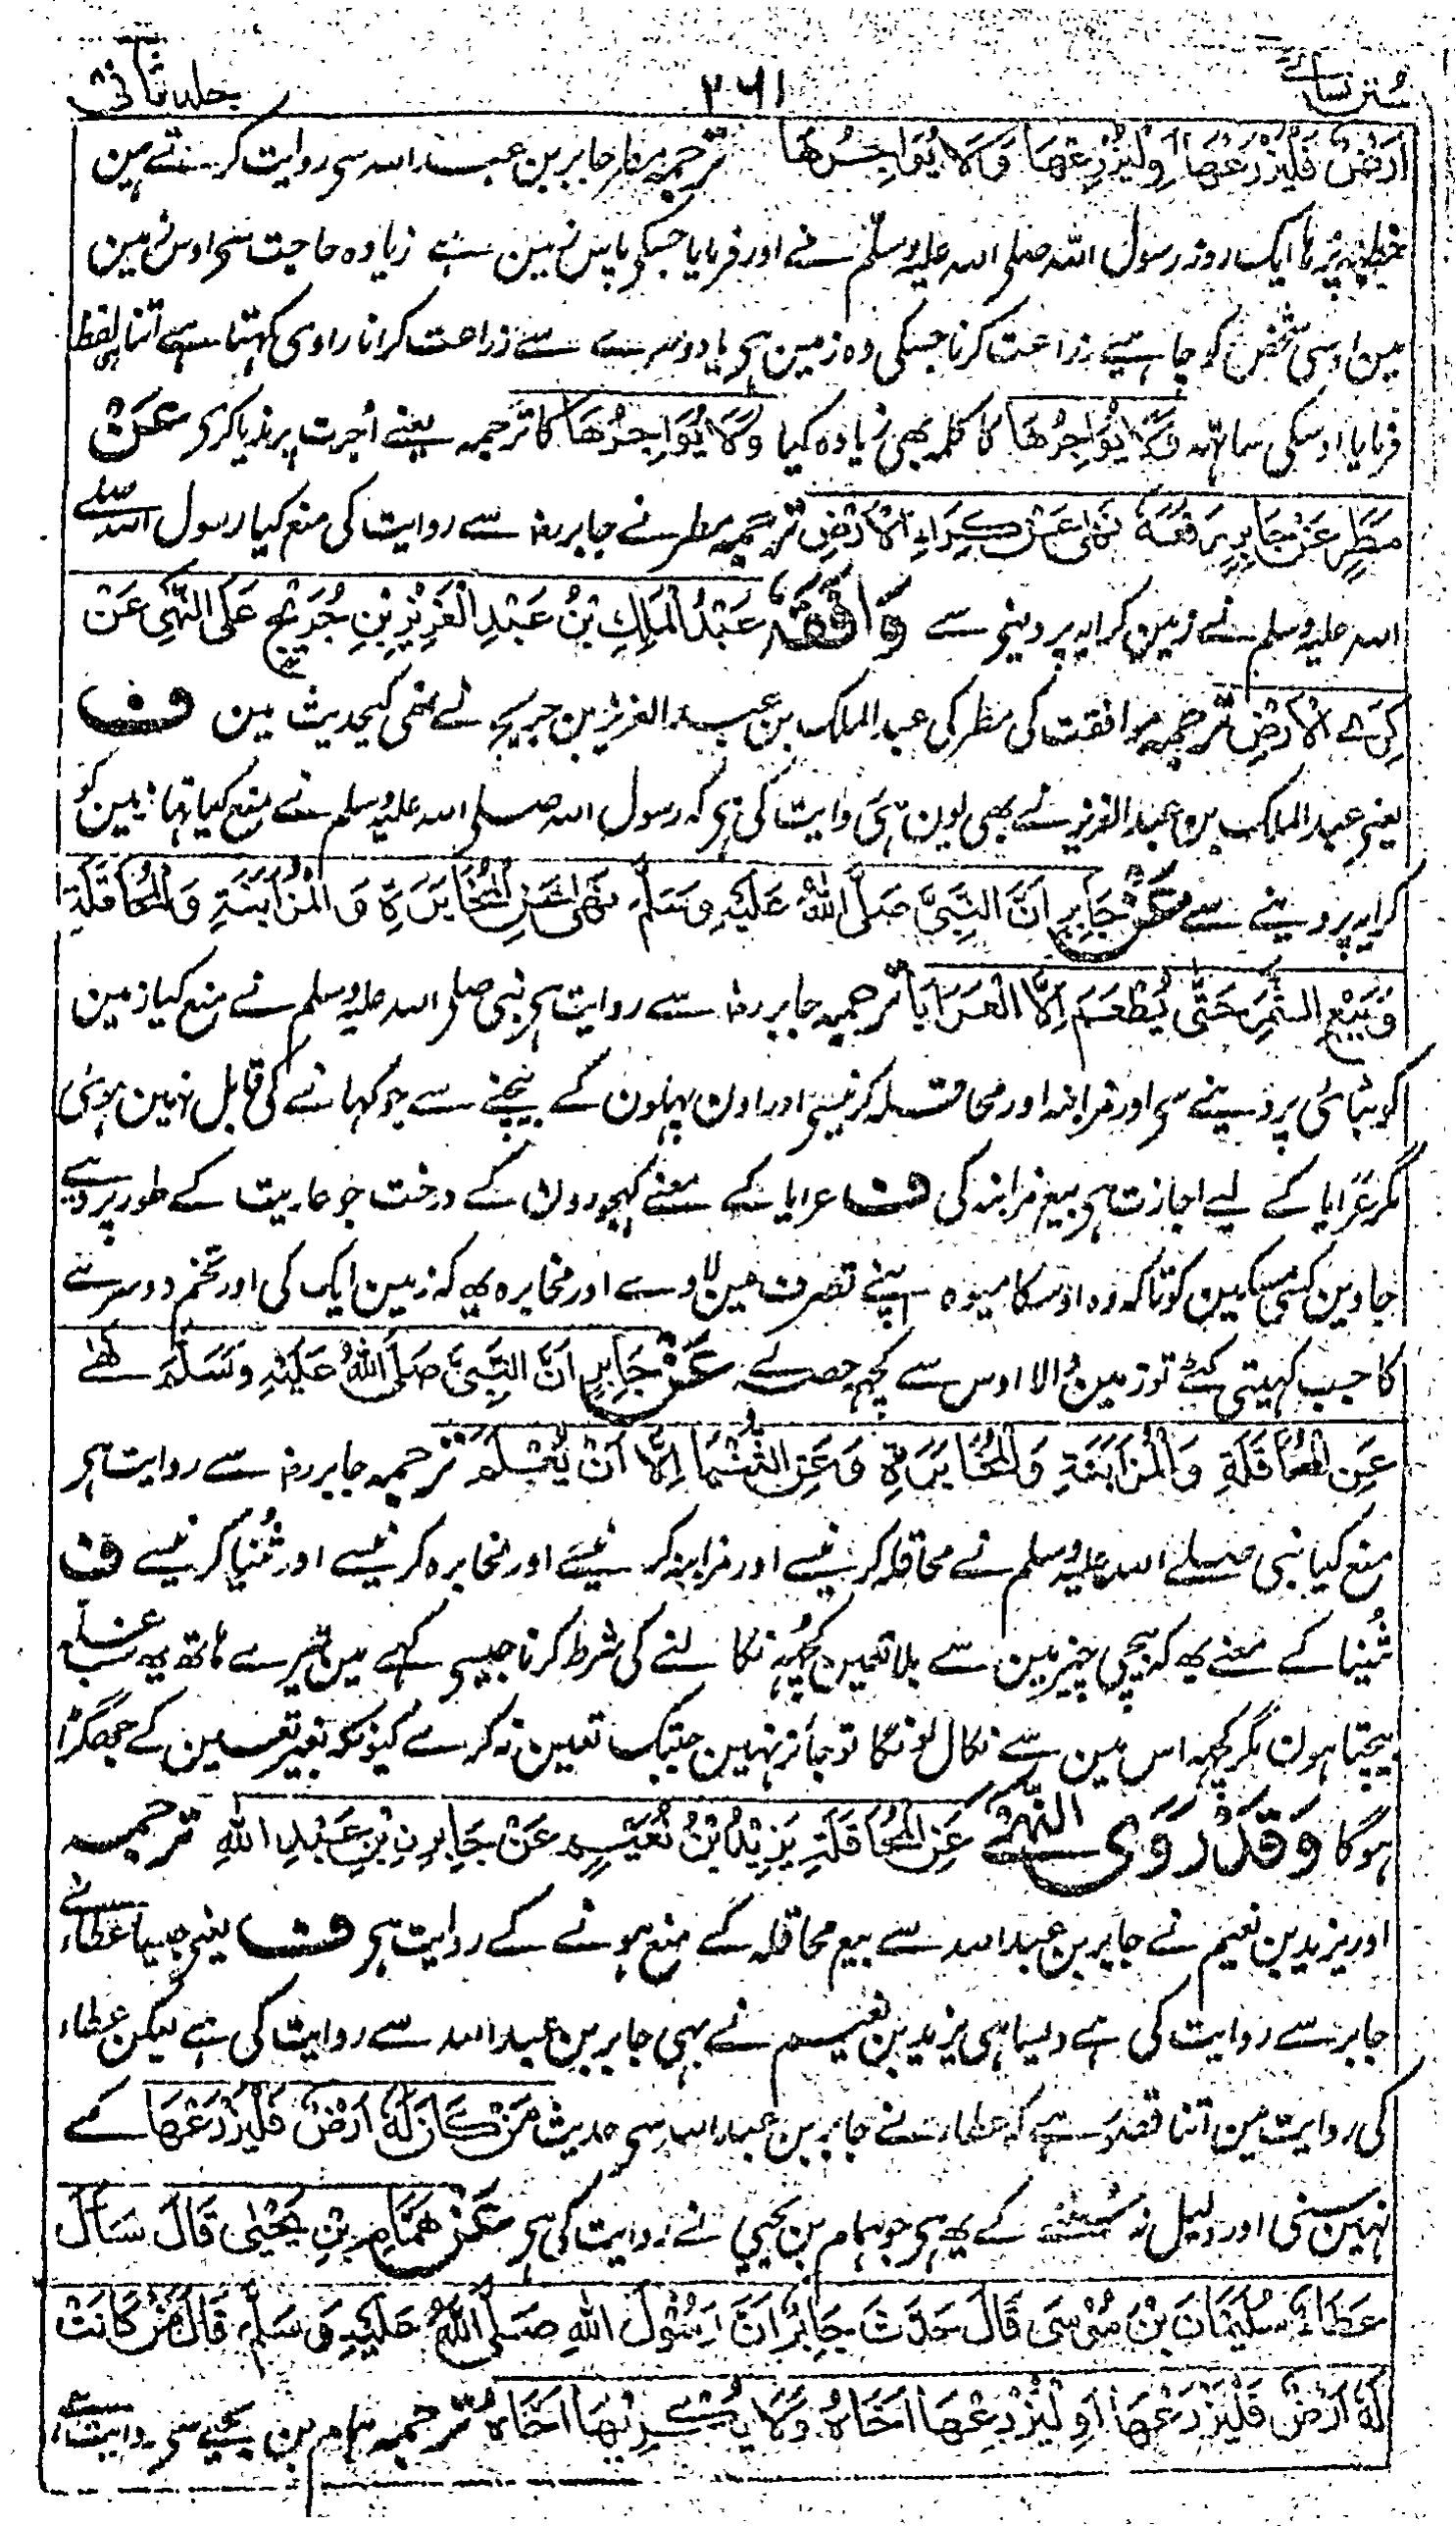 سنن نسائے ۲۶۱ جلد ثانی
اَرْضٌ فَلْيَزْرَعْهَا اَوْ لِيُزْرِعْهَا وَلَا يُوَاجِرْهَا ترجمہ جابر بن عبد اللہ سی روایت کرتے ہین
خطبہ پڑہا ایک روز رسول اللہ صلی اللہ علیہ وسلم نے اور فرمایا جسکی پاس زمین ہے زیادہ حاجت سی اوس زمین
مین اوسی شخص کو چاہیے زراعت کرنا جسکی وہ زمین ہی یا دوسرے سے زراعت کرانا راوی کہتا ہے اتنا ہی لفظ
فرمایا اوسکی ساتہہ وَلَا يُوَاجِرْهَا کا کلمہ بھی زیادہ کیا وَلَا يُوَاجِرْهَا کا ترجمہ یعنے اُجرت پر ندیا کری عَنْ
مَطَرٍ عَنْ جَابِرٍ رَفَعَهُ نَهَى عَنْ كِرَاءِ الْاَرْضِ ترجمہ مطر نے جابر رضہ سے روایت کی منع کیا رسول اللہ صلے
اللہ علیہ وسلم نے زمین کرایہ پر دینی سے وَافَقَهُ عَبْدُ الْمَلِكِ بْنُ عَبْدِ الْعَزِيْزِ بْنِ جُرَيْجٍ عَلَى النَّهْيِ عَنْ
كِرَے الْاَرْضِ ترجمہ موافقت کی مطر کی عبد الملک بن عبد العزیز بن جریج نے نھی کیحدیث مین ف
یعنی عبد الملک بن عبد العزیز نے بھی یون ہی روایت کی ہی کہ رسول اللہ صلی اللہ علیہ وسلم نے منع کیا تہا زمین کو
کرایہ پر دینے سے عَنْ جَابِرٍ اَنَّ النَّبِيَّ صَلَّى اللهُ عَلَيْهِ وَسَلَّمَ نَهٰى عَنِ الْمُخَابَرَةِ وَالْمُزَابَنَةِ وَالْمُحَاقَلَةِ
وَبَيْعِ الثَّمَرِ حَتّٰى يُطْعَمَ اِلَّا الْعَرَايَا ترجمہ جابر رضہ سے روایت ہی نبی صلی اللہ علیہ وسلم نے منع کیا زمین
کو بٹائی پر دینے سی اور مزابنہ اور محاقلہ کرنیسی اور اون پہلون کے بیچنے سے جو کہانے کی قابل نہین ہوئی
مگر عَرایا کے لیے اجازت ہی بیع مزابنہ کی ف عرایا کے معنے کہجورون کے درخت جو عاریت کے طور پر دیے
جاوین کسی مسکین کو تاکہ وہ اوسکا میوہ اپنے تصرف مین لاوے اور مخابرہ یہ کہ زمین ایک کی اور تخم دوسرے
کا جب کہیتی کٹے تو زمین والا اوس سے کچہ حصہ لے عَنْ جَابِرٍ اَنَّ النَّبِيَّ صَلَّى اللهُ عَلَيْهِ وَسَلَّمَ نَهٰے
عَنِ الْمُحَاقَلَةِ وَالْمُزَابَنَةِ وَالْمُخَابَرَةِ وَعَنِ الثُّنْيَا اِلَّا اَنْ يُّعْلَمَ ترجمہ جابر رضہ سے روایت ہی
منع کیا نبی صلے اللہ علیہ وسلم نے محاقلہ کرنیسے اور مزابنہ کرنیسے اور مخابرہ کرنیسے اور ثُنیا کرنیسے ف
ثُنیا کے معنے یہ کہ بیچی چیز مین سے بلا تعیین کچہہ نکالنے کی شرط کرنا جیسی کہے مین تیرے ہاتھ یہ سب غلہ
بیچتا ہون مگر کچہہ اس مین سے نکال لونگا تو جائز نہین جبتک تعیین نہ کرے کیونکہ بغیر تعیین کے جھگڑا
ہوگا وَقَدْ رَوَى النَّهْيَ عَنِ الْمُحَاقَلَةِ يَزِيْدُ بْنُ نُعَيْمٍ عَنْ جَابِرِ بْنِ عَبْدِ اللهِ ترجمہ
اور یزید بن نعیم نے جابر بن عبد اللہ سے بیع محاقلہ کے منع ہونے کے روایت ہی ف یعنی جیسا عطاء نے
جابر سے روایت کی ہے ویسا ہی یزید بن نعیم نے بہی جابر بن عبد اللہ سے روایت کی ہے لیکن عطاء
کی روایت مین اتنا قصور ہے کہ عطاء نے جابر بن عبد اللہ سی حدیث مَنْ كَانَ لَهُ اَرْضٌ فَلْيَزْرَعْهَا کے
نہین سنی اور دلیل نہ سُننے کے یہ ہی جو ہمام بن یحیی نے روایت کی ہی عَنْ هَمَّامِ بْنِ يَحْيٰى قَالَ سَاَلَ
عَطَاءً سُلَيْمَانُ بْنُ مُوْسٰى قَالَ حَدَّثَ جَابِرٌ اَنَّ رَسُوْلَ اللهِ صَلَّى اللهُ عَلَيْهِ وَسَلَّمَ قَالَ مَنْ كَانَتْ
لَهُ اَرْضٌ فَلْيَزْرَعْهَا اَوْ لِيُزْرِعْهَا اَخَاهُ وَلَا يُكْرِيْهَا اَخَاهُ ترجمہ ہمام بن یحیے سی روایت ہے